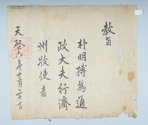 敎旨
朴明榑爲通
政大夫行濟
州牧使者
天啓六年十一月二十日